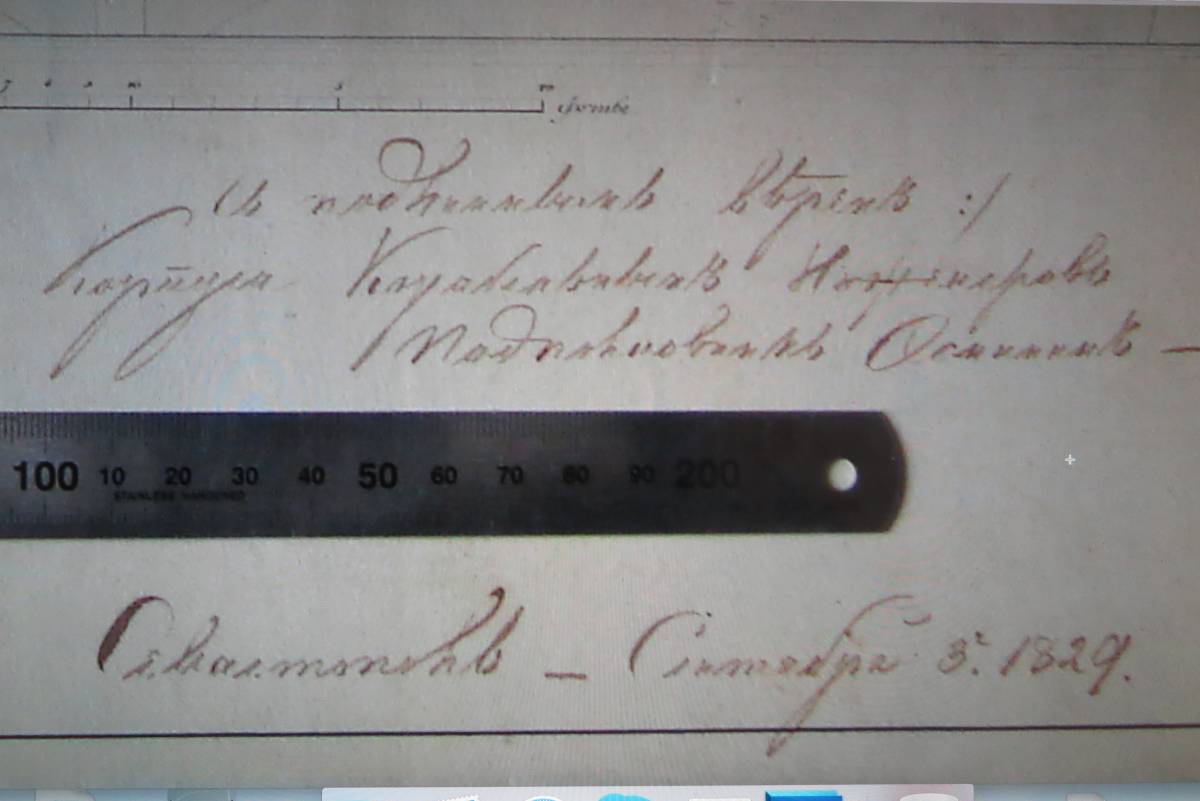 Съ подлиннымъ вѣренъ :/
Корпуса Корабельныхъ Инженеровъ
Подполковникъ Осмининъ —
100 10 20 30 40 50 60 70 80 90 200
STAINLESS HARDENED
Севастополь — Сентября 3го 1829.